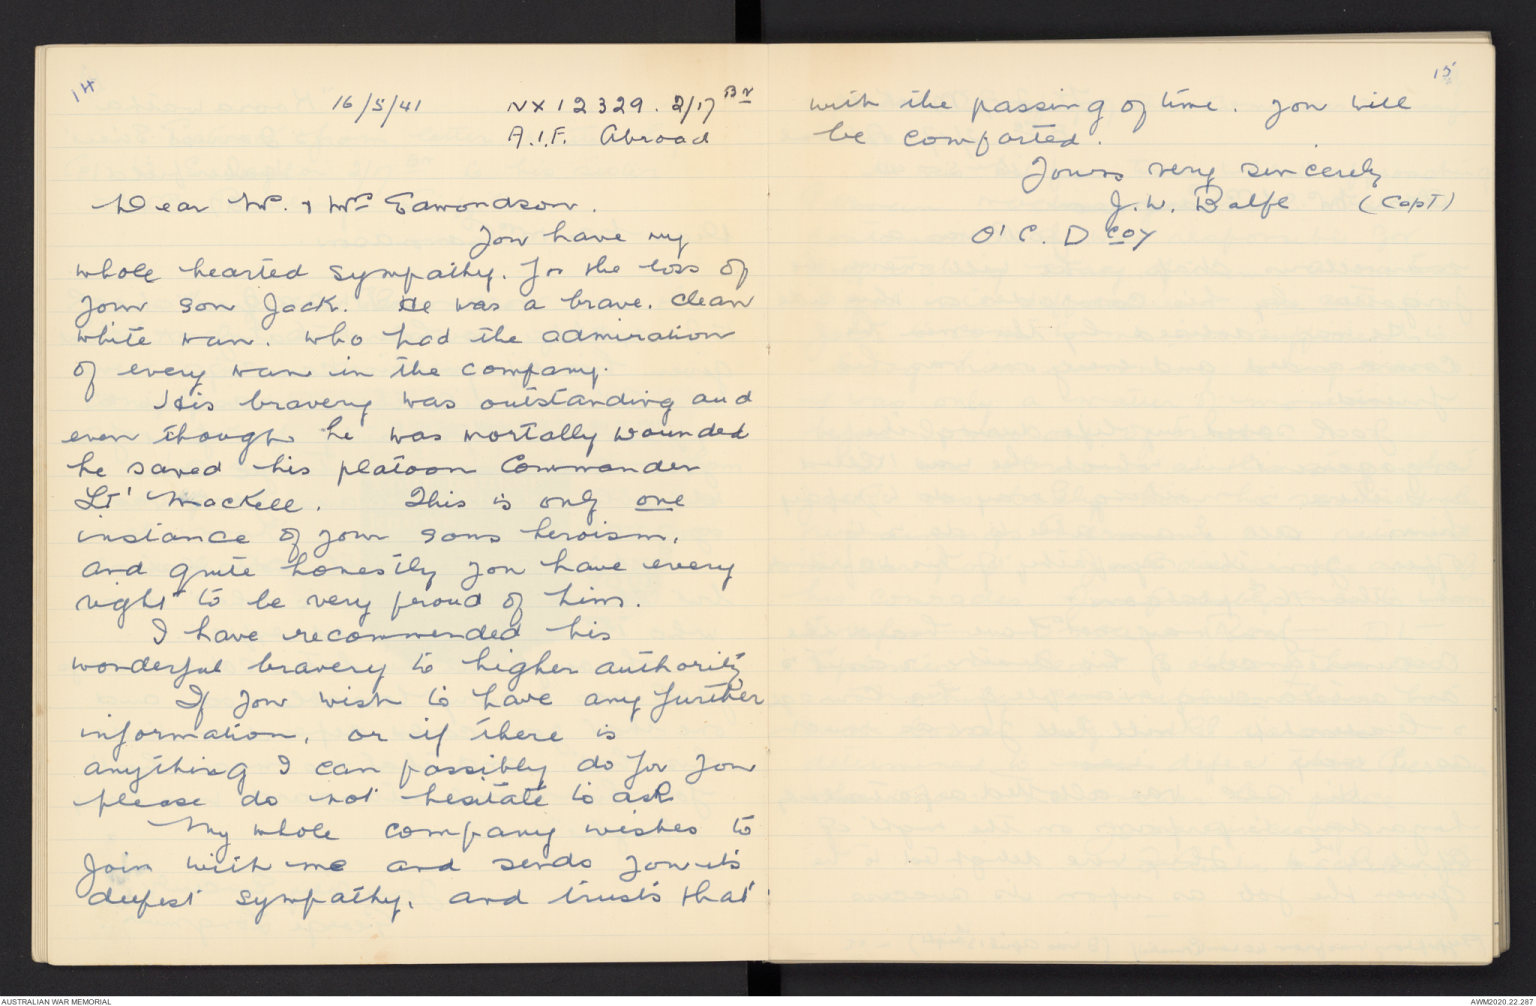 14
16/5/41 NX12329. 2/17 Bn
A.I.F. Abroad
Dear Mr. & Mrs Edmondson.
You have my
whole hearted sympathy. for the loss of
your son Jack. He was a brave. clean
white man. who had the admiration
of every man in the company.
His bravery was outstanding and
even though he was mortally wounded
he saved his platoon Commander
Lt' Mackell. This is only one
instance of your sons heroism,
and quite honestly you have every
right to be very proud of him.
I have recommended his
wonderful bravery to higher authority
If you wish to have any further
information, or if there is
anything I can possibly do for you
please do not hesitate to ask
My whole company wishes to
join with me and sends you its
deepest sympathy, and trusts that
15
with the passing of time. you will
be comforted.
Yours very sincerely
J.W. Balfe (Capt)
O'C. D Coy
AUSTRALIAN WAR MEMORIAL
AWM2020.22.287